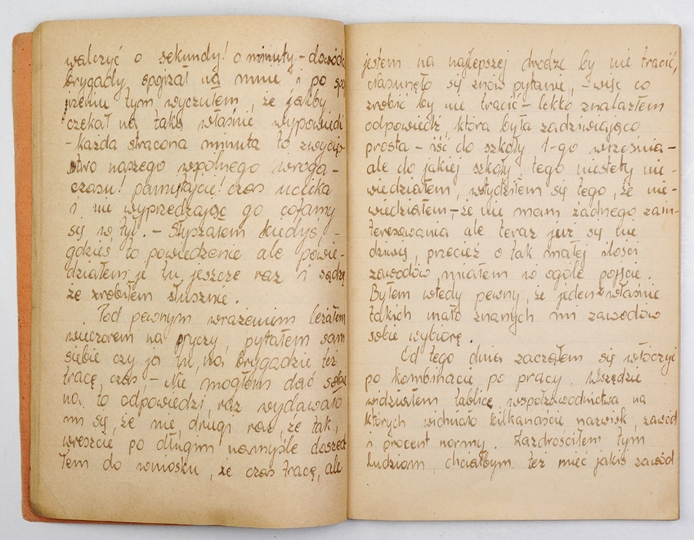 walczyć o sekundy! o minuty – dowódca
brygady spojrzał na mnie i po spoj
rzeniu tym wyczułem, że jakby
czekał na taką właśnie wypowiedź
– każda stracona minuta to zwycię
stwo naszego wspólnego wroga –
czasu! pamiętajcie! czas ucieka
i nie wyprzedzając go cofamy
się w tył. – Słyszałem kiedyś, –
gdzieś to powiedzenie ale powie-
działem je tu jeszcze raz i sądzę
że zrobiłem słusznie.
Pod pewnym wrażeniem leżałem
wieczorem na pryczy, pytałem sam
siebie czy ja tu, na brygadzie też
tracę czas – Nie mogłem dać sobie
na to odpowiedzi raz wydawało
mi się że nie drugi raz, że tak,
wreszcie po długim namyśle dosze
łem do wniosku, że czas tracę, ale
jestem na najlepszej drodze by nie tracić,
nasunęło się znów pytanie, – więc co
zrobić by nie tracić – lekko znalazłem
odpowiedź która była zadziwiająco
prosta – iść do szkoły 1-go września –
ale do jakiej szkoły tego niestety nie-
wiedziałem, wstydziłem się tego, że nie-
wiedziałem – że nie mam żadnego zain-
teresowania ale teraz już się nie
dziwię, przecież o tak małej ilości
zawodów miałem w ogóle pojęcie.
Byłem wtedy pewny, że jeden właśnie
z takich mało znanych mi zawodów
sobie wybiorę.
Od tego dnia zacząłem się włóczyć
po kombinacie, po pracy. Wszędzie
widziałem tablice współzawodnictwa na
których widniało kilkanaście nazwisk, zawód
i procent normy. Zazdrościłem tym
ludziom, chciałbym też mieć jakiś zawód